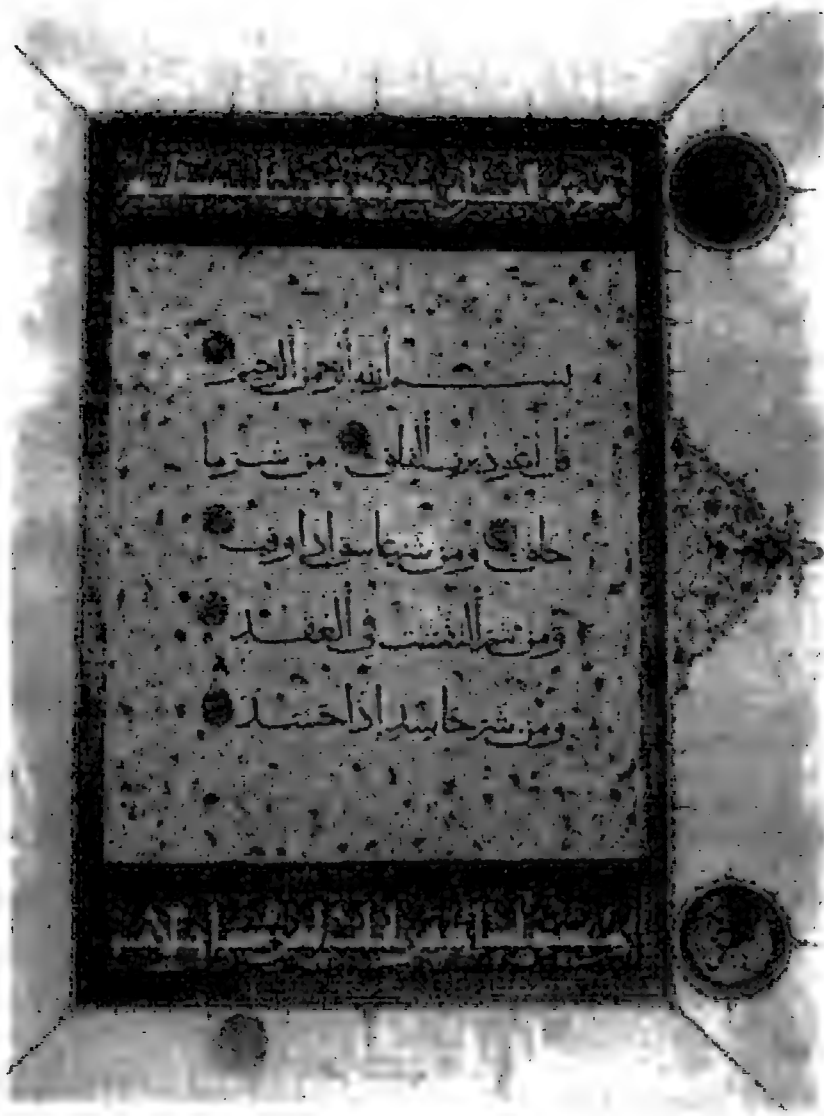 بسم الله الرحمن الرحيم
قل أعوذ برب الفلق من شر ما
خلق ومن شر غاسق إذا وقب
ومن شر النفثت في العقد
ومن شر حاسد إذا حسد